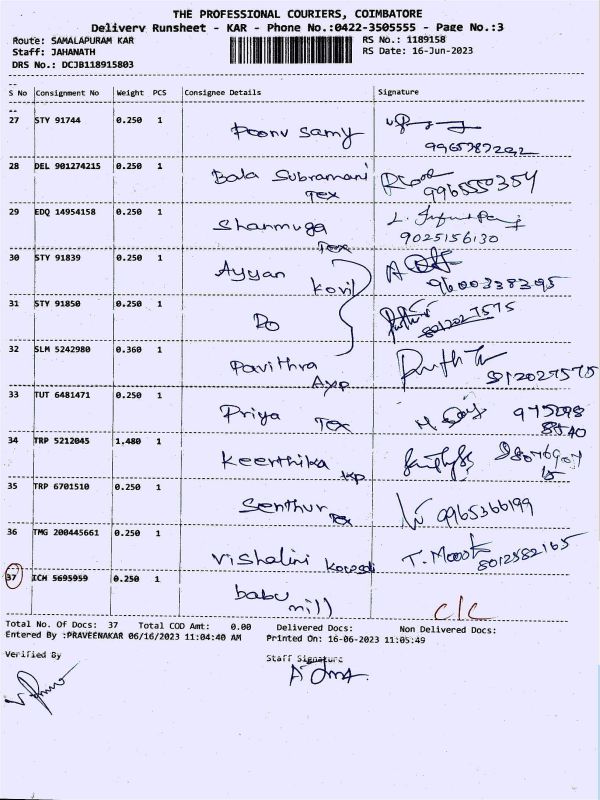 THE PROFESSIONAL COURIERS, COIMBATORE
Delivery Runsheet - KAR - Phone No.:0422-3505555 - Page No.:3
Route: SAMALAPURAM KAR RS No.: 1189158
Staff: JAHANATH RS Date: 16-Jun-2023
DRS No.: DCJB118915803
S No Consignment No Weight PCS Consignee Details Signature
27 STY 91744 0.250 1 Poonu Samy
28 DEL 901274215 0.250 1 Bala Subramani
Tex 9965550354
29 EDQ 14954158 0.250 1 Shanmuga
Tex 9025156130
30 STY 91839 0.250 1 Ayyan Kovil
9600338395
31 STY 91850 0.250 1 Do
8012027575
32 SLM 5242980 0.360 1 Pavithra
Ayp 8012027575
33 TUT 6481471 0.250 1 Priya Tex
34 TRP 5212045 1.480 1 Keerthika
kp
35 TRP 6701510 0.250 1 Senthur
Tex 9965366199
36 TMG 200445661 0.250 1 Vishalini
8012582165
37 ICH 5695959 0.250 1 babu
mill c/c
Total No. Of Docs: 37 Total COD Amt: 0.00 Delivered Docs: Non Delivered Docs:
Entered By :PRAVEENAKAR 06/16/2023 11:04:40 AM Printed On: 16-06-2023 11:05:49
Verified By Staff Signature